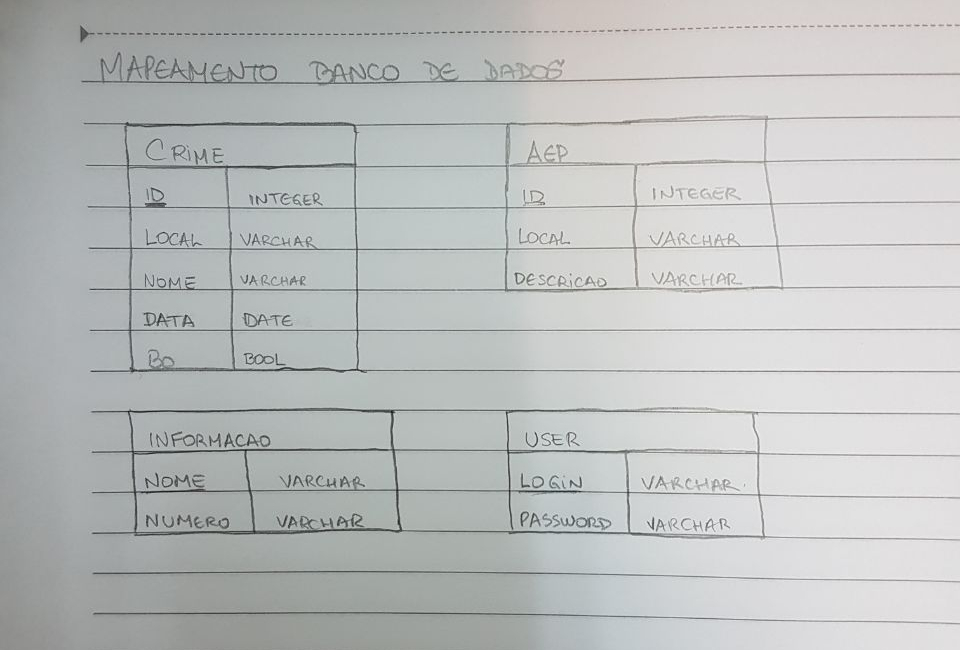 MAPEAMENTO BANCO DE DADOS
CRIME
ID INTEGER
LOCAL VARCHAR
NOME VARCHAR
DATA DATE
BO BOOL
AEP
ID INTEGER
LOCAL VARCHAR
DESCRICAO VARCHAR
INFORMACAO
NOME VARCHAR
NUMERO VARCHAR
USER
LOGIN VARCHAR.
PASSWORD VARCHAR